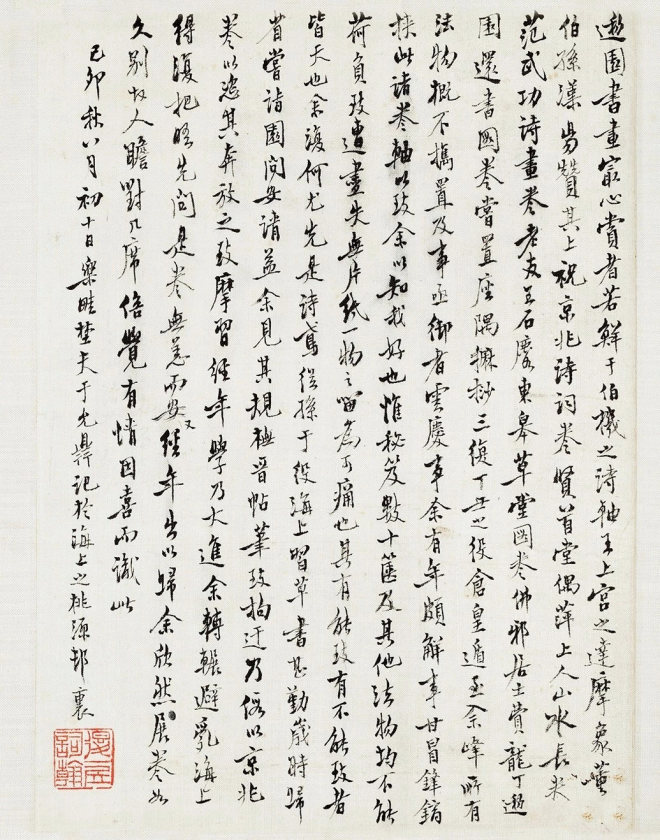 遯園書畫最心賞者若鮮于伯機之詩軸王上宮之達摩象
伯孫漢易贊其上祝京兆詩詞卷賢首堂偶萍上人山水長
范武功詩畫卷老友王石慶東皋草堂圖卷佛邪居士賞龍丁遯
園還書圖卷嘗置座隅摩挲三復丁丑之役倉皇遁至余峰所有
法物概不攜置及事亟御者雲慶事余有年頗解事甘冒鋒鏑
挾此諸卷軸以致余以知我好也惟秘笈數十篋及其他法物均不能
荷負致遭盡失無片紙一物之留為可痛也其有能致有不能致者
皆天也余復何尤先是詩鳶從孫于役海上習草書甚勤歲時歸
省嘗詣園問安請益余見其規橅晉帖筆致拘迂乃假以京兆
卷以恣其奔放之致摩習經年學乃大進余轉輾避亂海上
得復把晤先問是卷無恙而安又經年出以歸余欣然展卷如
久別故人瞻對几席倍覺有情因喜而識此
己卯秋八月初十日樂畦埜夫于允鼎記於海上之桃源邨裏